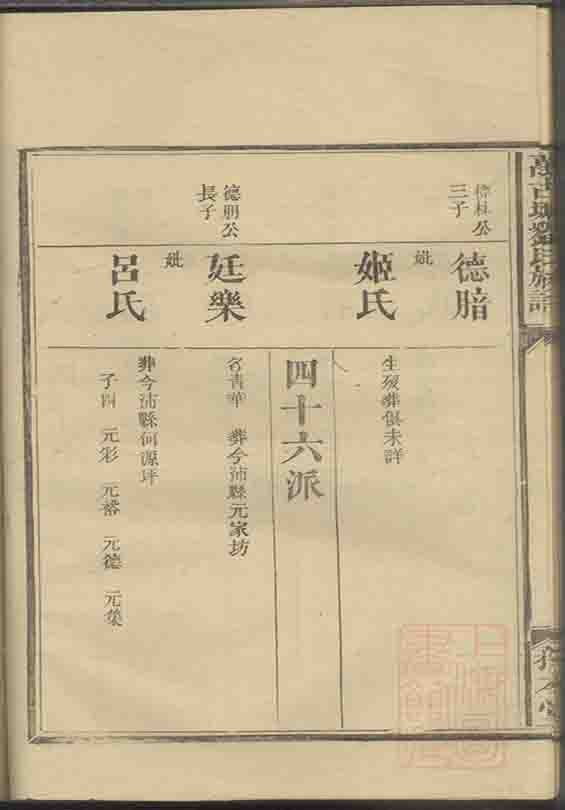 劉氏族譜
公
三子
德暗
妣
姬氏
生歿葬俱未詳
四十六派
德明公
長子
廷樂
名青華 葬今沛縣元家坊
妣
呂氏
葬今沛縣何源坪
子四 元彩 元裕 元德 元集